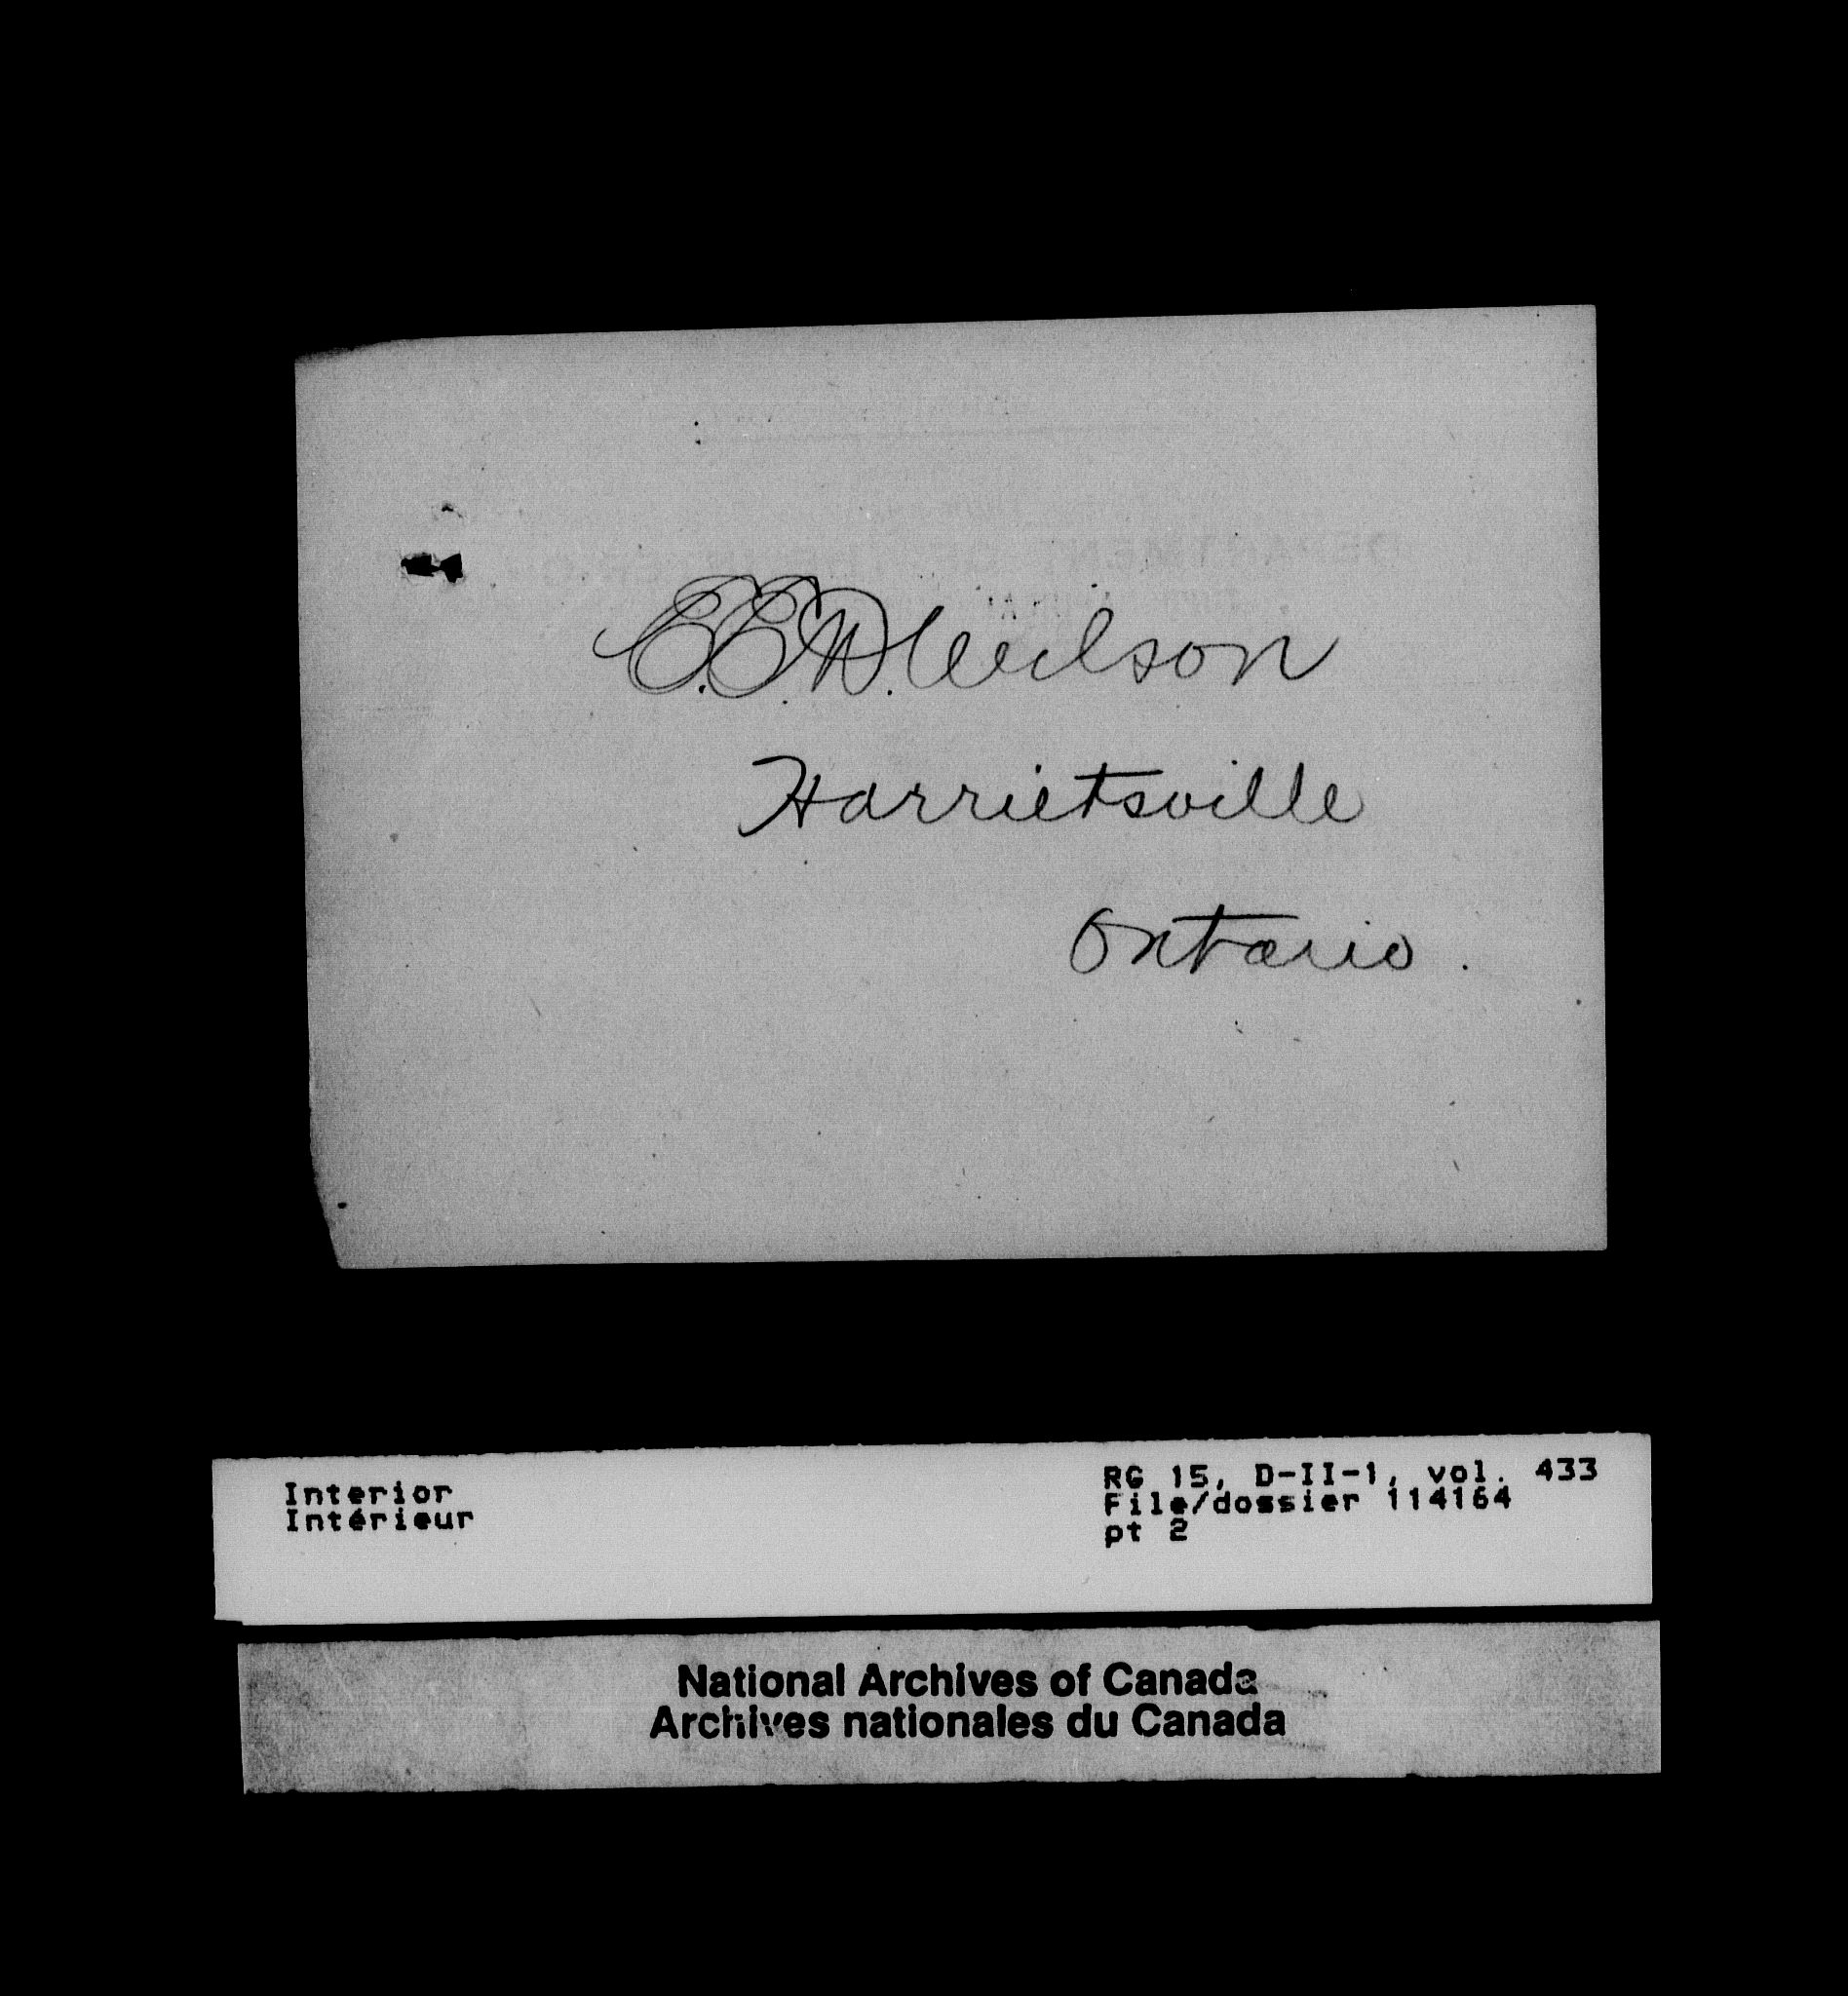 E. E. W. Wilson
Harrietsville
Ontario.
Interior
Intérieur
RG 15, D-II-1, vol. 433
File/dossier 114164
pt 2
National Archives of Canada
Archives nationales du Canada